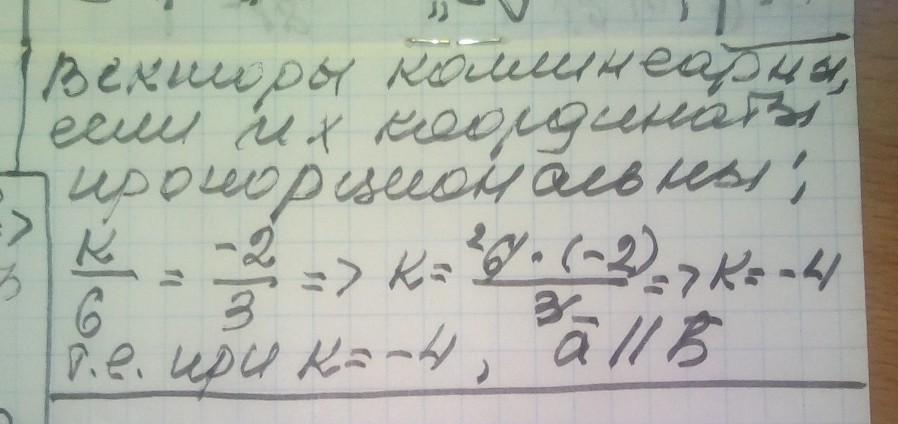 Векторы коллинеарны,
если их координаты
пропорциональны;
K/6 = -2/3 => K = 6·(-2)/3 => K = -4
т.е. при K = -4, a̅ || b̅